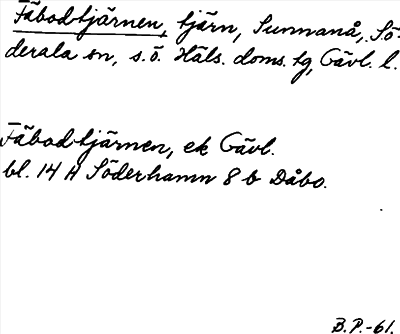 Fäbodtjärnen, tjärn, Sunnanå, Sö-
derala sn, s.ö. Häls. doms. tg, Gävl. l.
Fäbodtjärnen, ek Gävl.
bl. 14 H Söderhamn 8 b Dåbo.
B.P.-61.